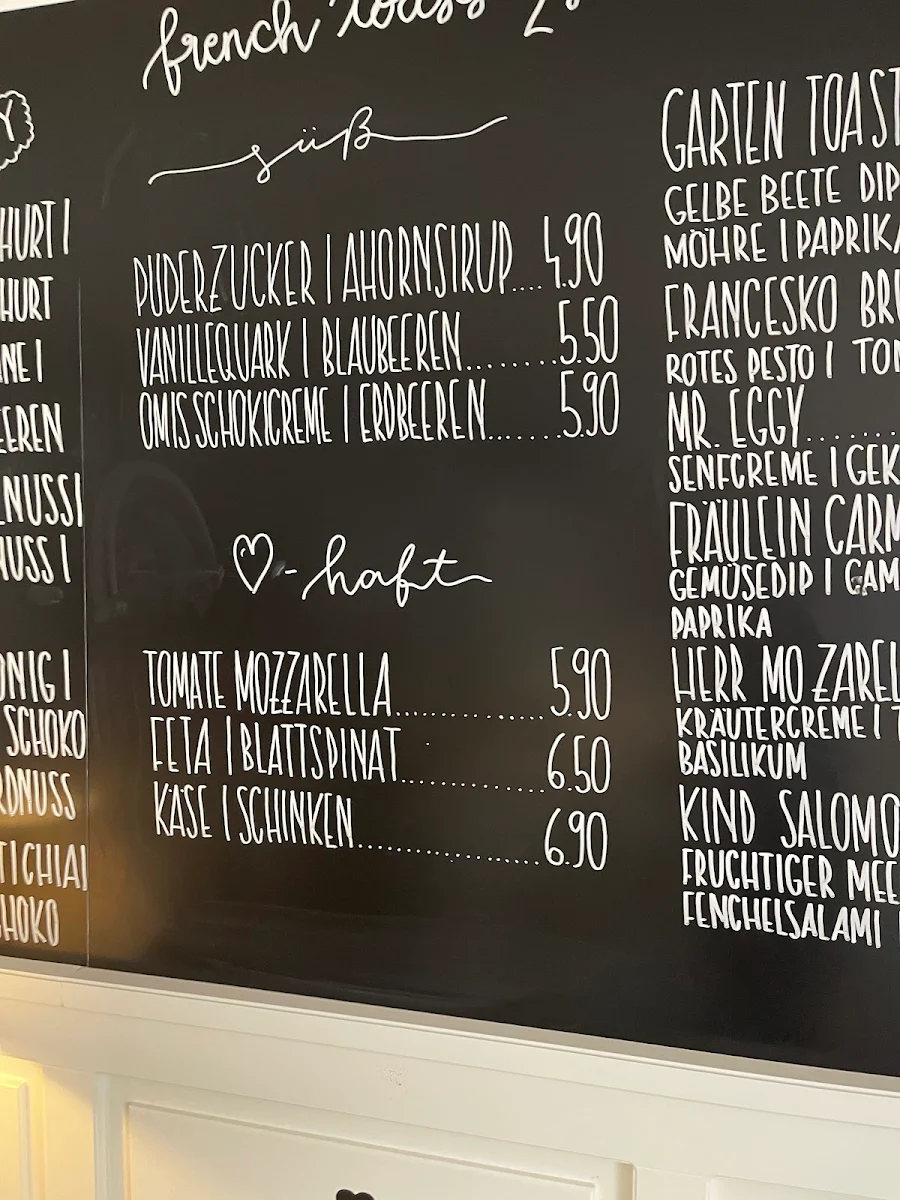 french
süß
PUDERZUCKER | AHORNSIRUP....4.90
VANILLEQUARK | BLAUBEEREN........5.50
OMIS SCHOKICREME | ERDBEEREN.......5.90
♡-haft
TOMATE MOZZARELLA...............5.90
FETA | BLATTSPINAT...............6.50
KÄSE | SCHINKEN...................6.90
Y
HURT |
HURT
NE |
EEREN
NUSS|
NUSS |
ONIG |
SCHOKO
RDNUSS
T | CHIA|
HOKO
GARTEN TOAST
GELBE BEETE DIP
MÖHRE | PAPRIKA
FRANCESKO BR
ROTES PESTO | TO
MR. EGGY.......
SENFCREME | GEK
FRÄULEIN CARM
GEMÜSEDIP | CAM
PAPRIKA
HERR MO ZAREL
KRÄUTERCREME | T
BASILIKUM
KIND SALOMO
FRUCHTIGER MEE
FENCHELSALAMI |